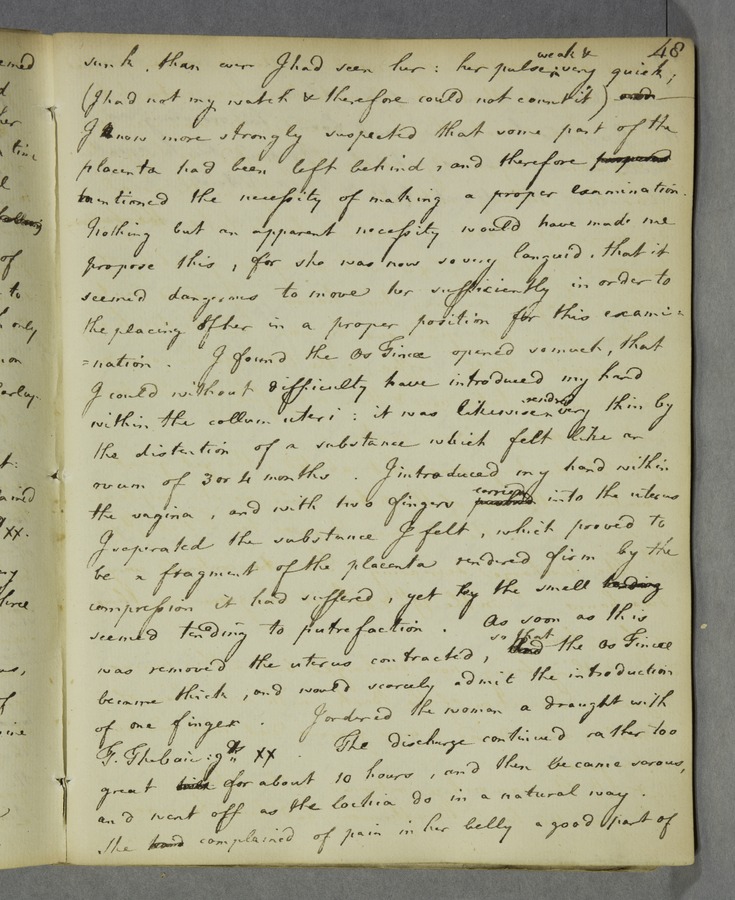 48
sunk, than ever I had seen her: her pulse, weak & very quick;
(I had not my watch & therefore could not count it)
I now more strongly suspected that some part of the
placenta had been left behind, and therefore proposed
mentioned the necessity of making a proper examination.
Nothing but an apparent necessity would have made me
propose this, for she was now so very languid, that it
seemed dangerous to move her sufficiently in order to
the placing of her in a proper position for this exami=
=nation. I found the Os Tincæ opened so much, that
I could without difficulty have introduced my hand
within the collum uteri: it was likewise rendred very thin by
the distention of a substance which felt like an
ovum of 3 or 4 months. I introduced my hand within
the vagina, and with two fingers carried into the uterus
I seperated the substance I felt, which proved to
be a fragment of the placenta rendered firm by the
compression it had suffered, yet by the smell tending
seemed tending to putrefaction. As soon as this
was removed the uterus contracted, so that the Os Tincæ
became thick, and would scarcely admit the introduction
of one finger. I ordered the woman a draught with
T. Thebaic: gtt XX. The discharge continued rather too
great for about 10 hours, and then became serous,
and went off as the lochia do in a natural way.
She had complained of pain in her belly a good part of